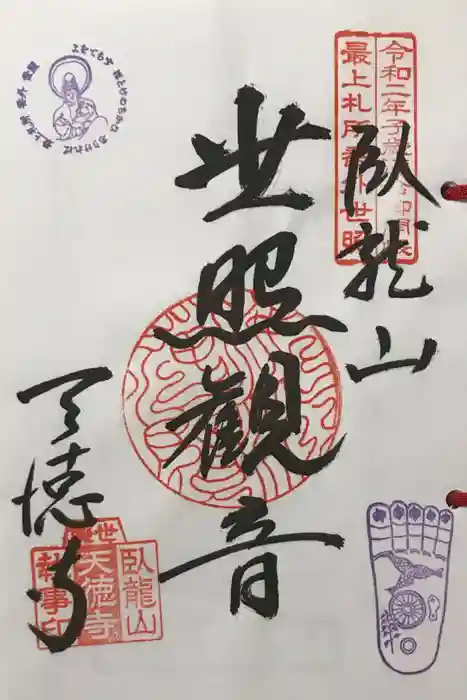 令和二年子歳
最上札所番外世照
臥龍山
世照観音
天徳寺
臥龍山
天徳寺
執事印